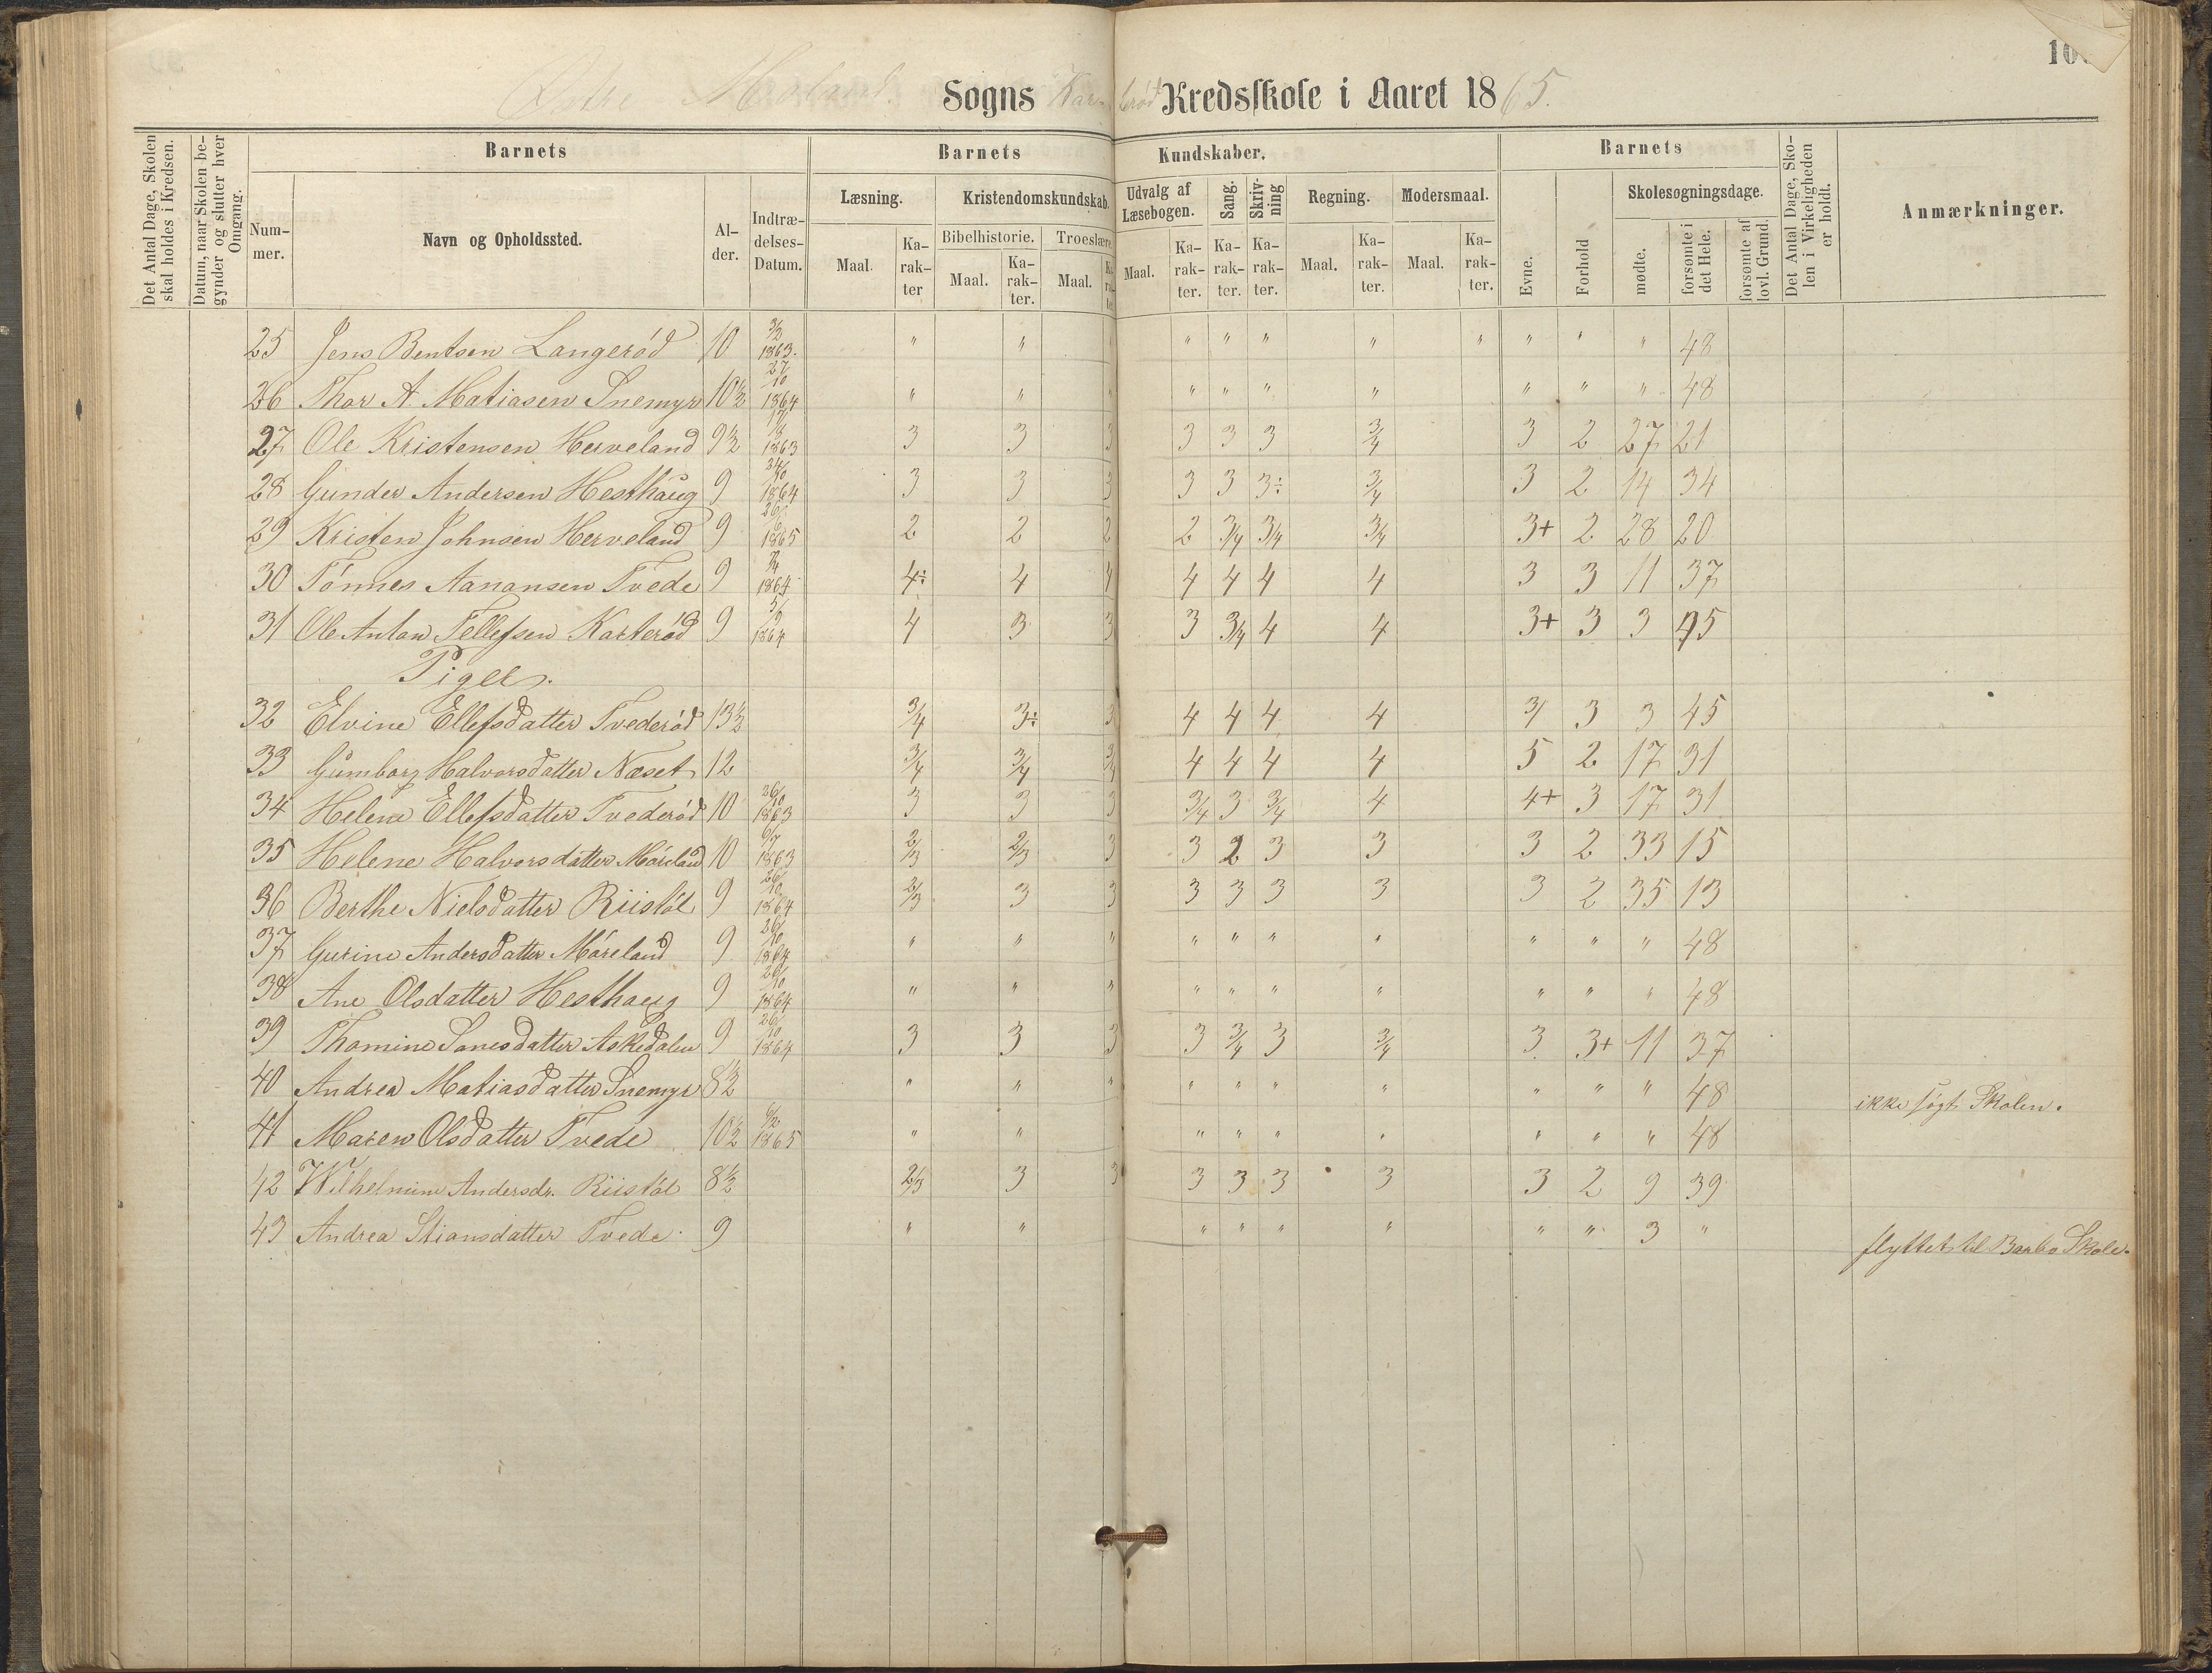 Østre Moland Sogns Karterød Kredsskole i Aaret 1865.
Det Antal Dage, Skolen skal holdes i Kredsen.
Datum, naar Skolen begynder og slutter hver Omgang.
Barnets
Nummer.
Navn og Opholdssted.
Alder.
Indtrædelses-Datum.
Barnets Kundskaber.
Læsning. Kristendomskundskab. Udvalg af Læsebogen. Sang. Skrivning Regning. Modersmaal.
Bibelhistorie. Troeslære.
Maal. Karakter Maal. Karakter. Maal. Karakter Maal. Karakter. Karakter. Karakter. Maal. Karakter. Maal. Karakter.
Barnets
Evne. Forhold Skolesøgningsdage.
mødte. forsømte i det Hele. forsømte af lovl. Grund.
Det Antal Dage, Skolen i Virkeligheden er holdt.
Anmærkninger.
25 Jens Bentsen Langerød 10 3/2 1863. " " " " " " " " " " " 48
26 Thor A. Matiasen Snemyr 10½ 27/10 1864 " " " " " " " " " " 48
27 Ole Kristensen Herveland 9½ 17/8 1863 3 3 3 3 3 3 3/4 3 2 27 21
28 Gunder Andersen Hesthaug 9 24/10 1864 3 3 3 3 3 3÷ 3/4 3 2 14 34
29 Kristen Johnsen Herveland 9 26/6 1865 2 2 2 2 3/4 3/4 3/4 3+ 2 28 20
30 Tønnes Aanansen Tvede 9 1864 4÷ 4 4 4 4 4 4 3 3 11 37
31 Ole Anton Tellefsen Karterød 9 5/9 1864 4 3 3 3 3/4 4 4 3+ 3 3 45
Piger.
32 Elvine Ellefsdatter Tvederød 13½ 3/4 3÷ 3 4 4 4 4 3/ 3 3 45
33 Gumborg Halvorsdatter Næset 12 3/4 3/4 3/4 4 4 4 4 5 2 17 31
34 Helene Ellefsdatter Tvederød 10 26/10 1863 3 3 3 3/4 3 3/4 4 4+ 3 17 31
35 Helene Halvorsdatter Møreland 10 6/7 1863 2/3 2/3 3 3 2 3 3 3 2 33 15
36 Berthe Nielsdatter Riisløt 9 26/10 1864 2/3 3 3 3 3 3 3 3 2 35 13
37 Gurine Andersdatter Møreland 9 26/10 1864 " " " " " " " " " " 48
38 Ane Olsdatter Hesthaug 9 26/10 1864 " " " " " " " " " " 48
39 Thomine Sanesdatter Askedalen 9 26/10 1864 3 3 3 3 3/4 3 3/4 3 3+ 11 37
40 Andrea Matiasdatter Snemyr 8½ " " " " " " " " " " 48 ikke søgt Skolen.
41 Maren Olsdatter Tvede 10½ 6/2 1865 " " " " " " " " " 48
42 Wilhelmine Andersdr. Riisløt 8½ 2/3 3 3 3 3 3 3 3 2 9 39
43 Andrea Stiansdatter Tvede 9 " " " " " " " " 3 " flyttet til Barbo Skole.